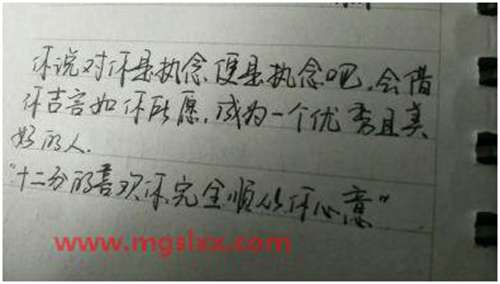 你说对你是执念便是执念吧,会借
你吉言如你所愿,成为一个优秀且美
好的人.
"十二分的喜欢你完全顺从你心意"
www.mgslxx.com